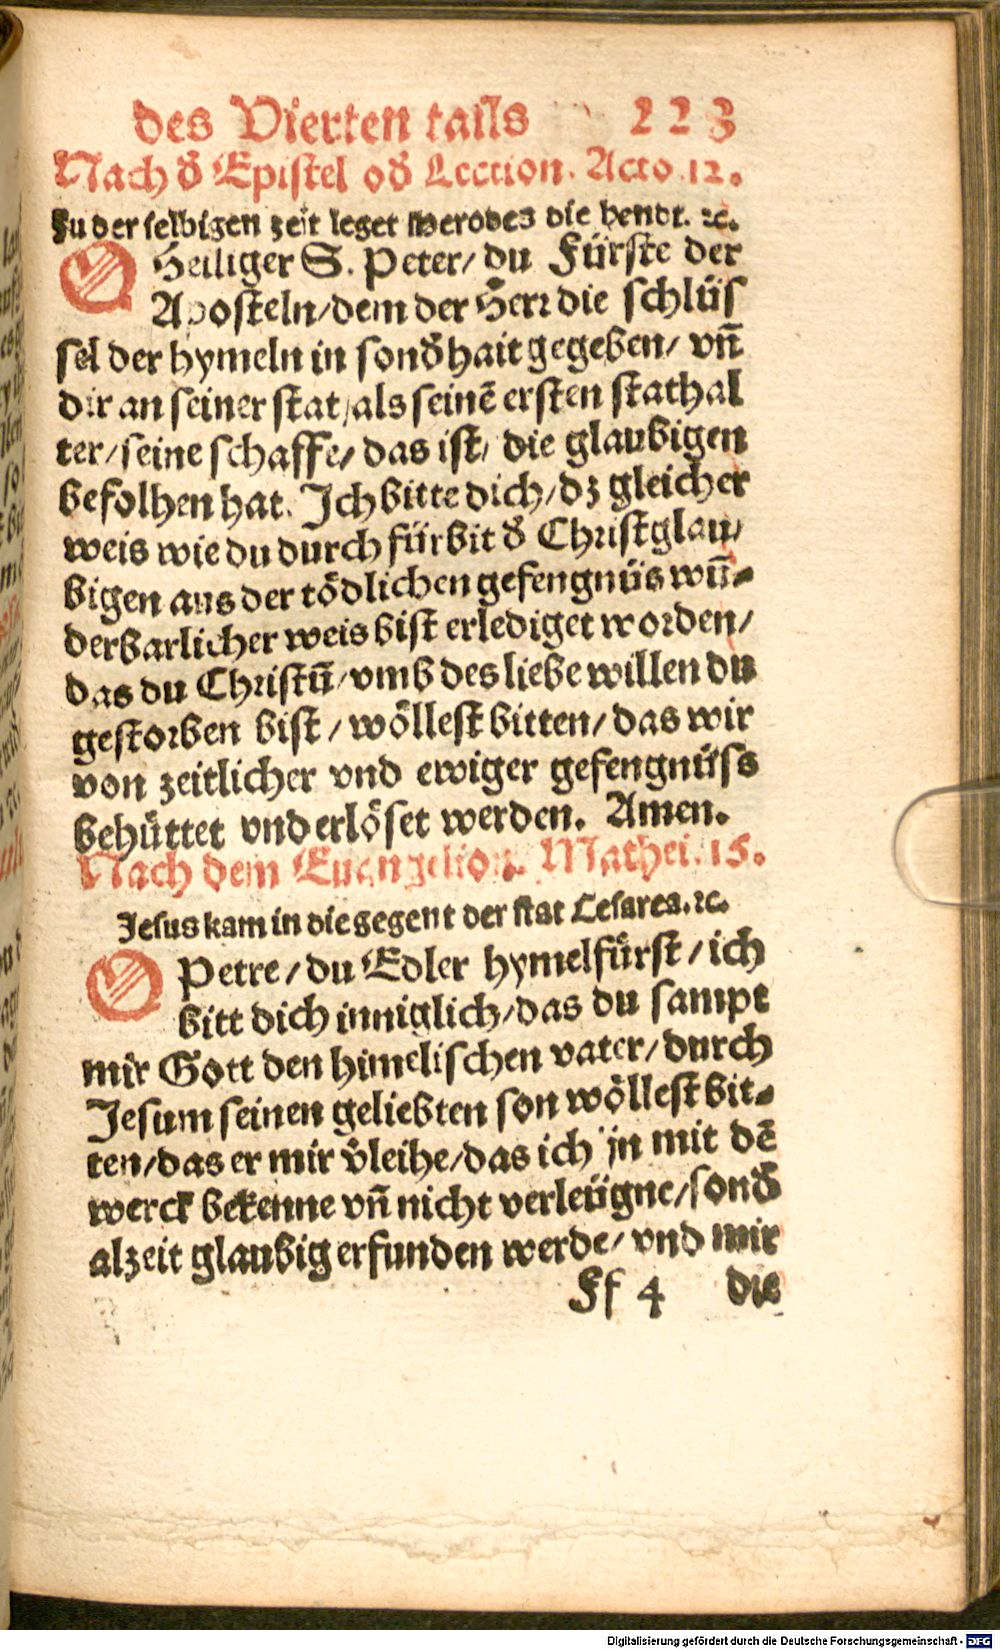 des Vierten tails 223
Nach d̕ Epistel od̕ Lection. Acto. 12.
Zu der selbigen zeit leget Herodes die hendt. ꝛc.
O Heiliger S. Peter/ du Fürste der
Aposteln/dem der Herr die schlüs
sel der hymeln in sond̕hait gegeben/ vn̄
dir an seiner stat/als seinē ersten stathal
ter/seine schaffe/ das ist/ die glaubigen
befolhen hat. Ich bitte dich/dz gleicher
weis wie du durch fürbit d̕ Christglau/
bigen aus der tödlichen gefengnüs wū-
derbarlicher weis bist erlediget worden/
das du Christū/vmb des liebe willen du
gestorben bist/ wöllest bitten/ das wir
von zeitlicher vnd ewiger gefengnüss
behüttet vnd erlöset werden. Amen.
Nach dem Euangelion. Mathei. 15.
Jesus kam in die gegent der stat Cesarea. ꝛc.
O Petre/du Edler hymelfürst/ich
bitt dich inniglich/das du sampt
mir Gott den himelischen vater/durch
Jesum seinen geliebten son wöllest bit-
ten/das er mir v̕leihe/das ich jn mit dē
werck bekenne vn̄ nicht verleügne/sond̕
alzeit glaubig erfunden werde/ vnd mir
Ff 4 die
Digitalisierung gefördert durch die Deutsche Forschungsgemeinschaft - DFG